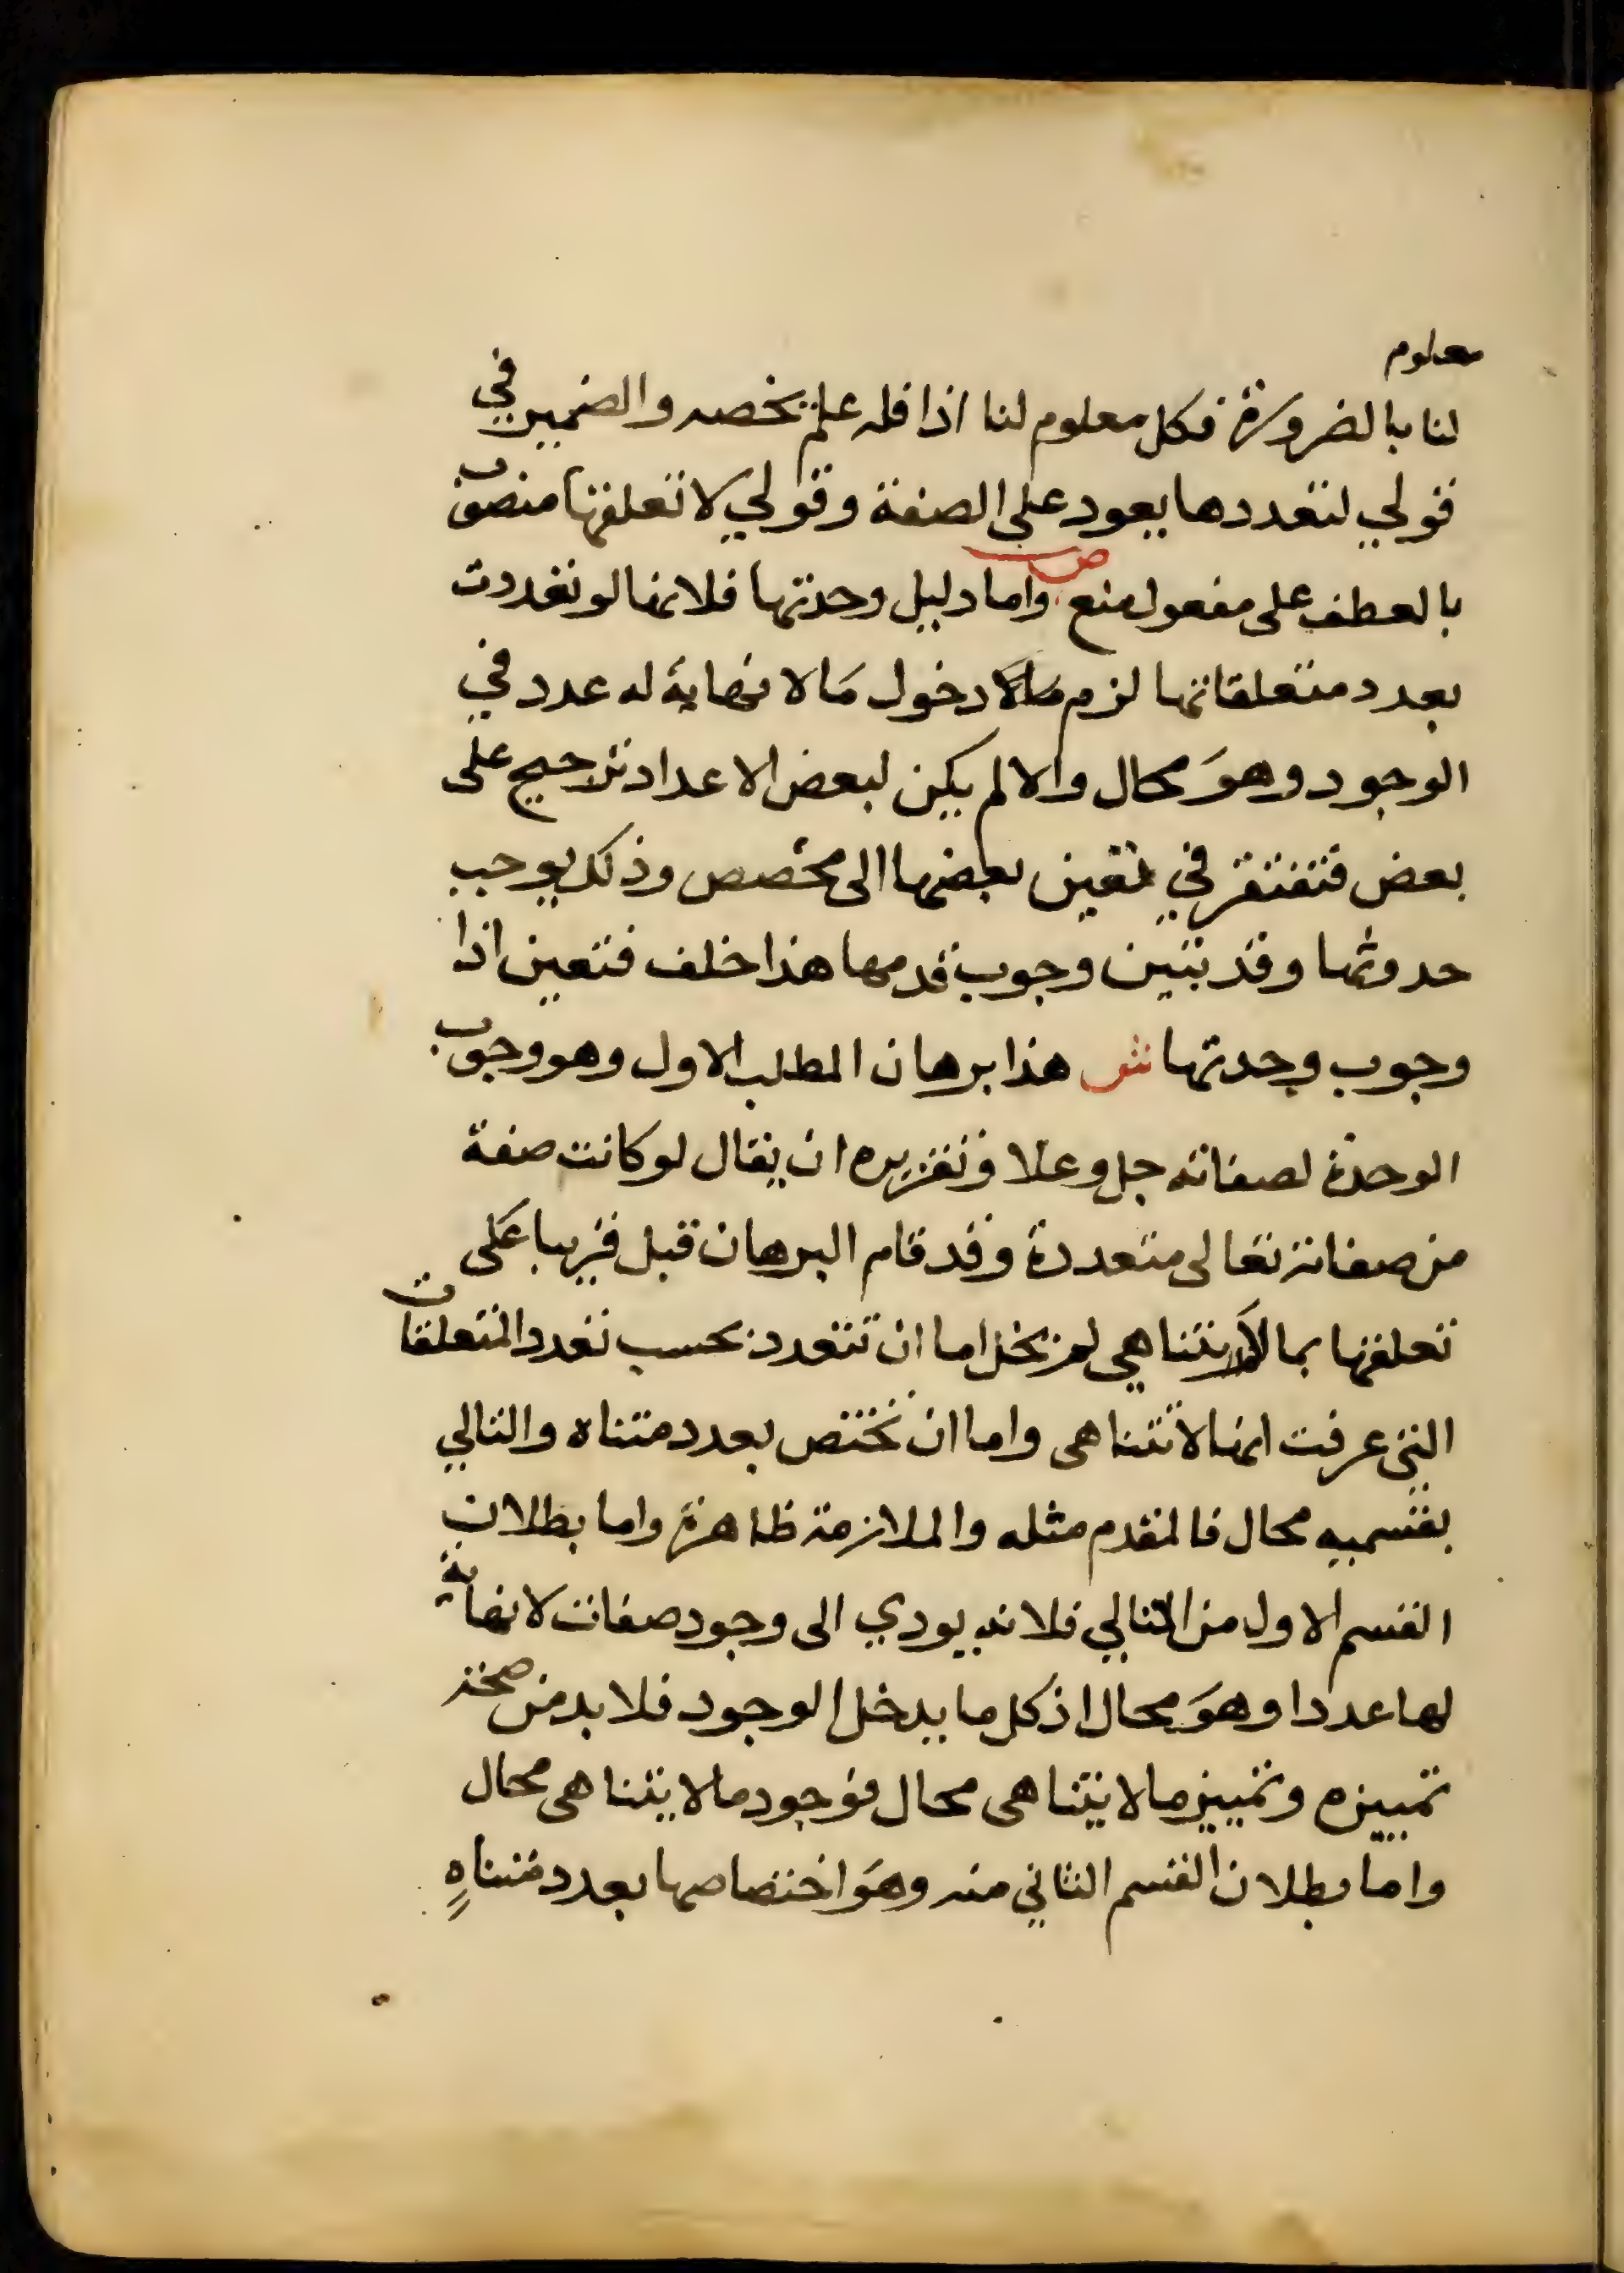 معلوم
لنا بالضرورة فكل معلوم لنا اذا فله علم يخصه والضمير في
قولي لتعددها يعود على الصفة وقولي لا تعلقها منصوب
بالعطف على مفعول منع ص واما دليل وحدتها فلانها لو تعددت
بعدد متعلقاتها لزم دخول ما لا نهاية له عدد في
الوجود وهو محال والا لم يكن لبعض الاعداد ترجيح على
بعض فتفتقر في تعين بعضها الى مخصص وذلك يوجب
حدوثها وقد تبين وجوب قدمها هذا خلف فتعين اذا
وجوب وحدتها ش هذا برهان المطلب الاول وهو وجوب
الوحدة لصفاته جل وعلا وتقريره ان يقال لو كانت صفة
من صفاته تعالى متعددة وقد قام البرهان قبل قريبا على
تعلقها بما لا يتناهى لم يخل اما ان تتعدد بحسب تعدد المتعلقات
التي عرفت انها لا تتناهى واما ان تختص بعدد متناه والتالي
بقسميه محال فالمقدم مثله والملازمة ظاهرة واما بطلان
القسم الاول من التالي فلانه يودي الى وجود صفات لا نهاية
لها عددا وهو محال اذ كل ما يدخل الوجود فلا بد من صحة
تمييزه وتمييز ما لا يتناهى محال فوجود ما لا يتناهى محال
واما بطلان القسم الثاني منه وهو اختصاصها بعدد متناه